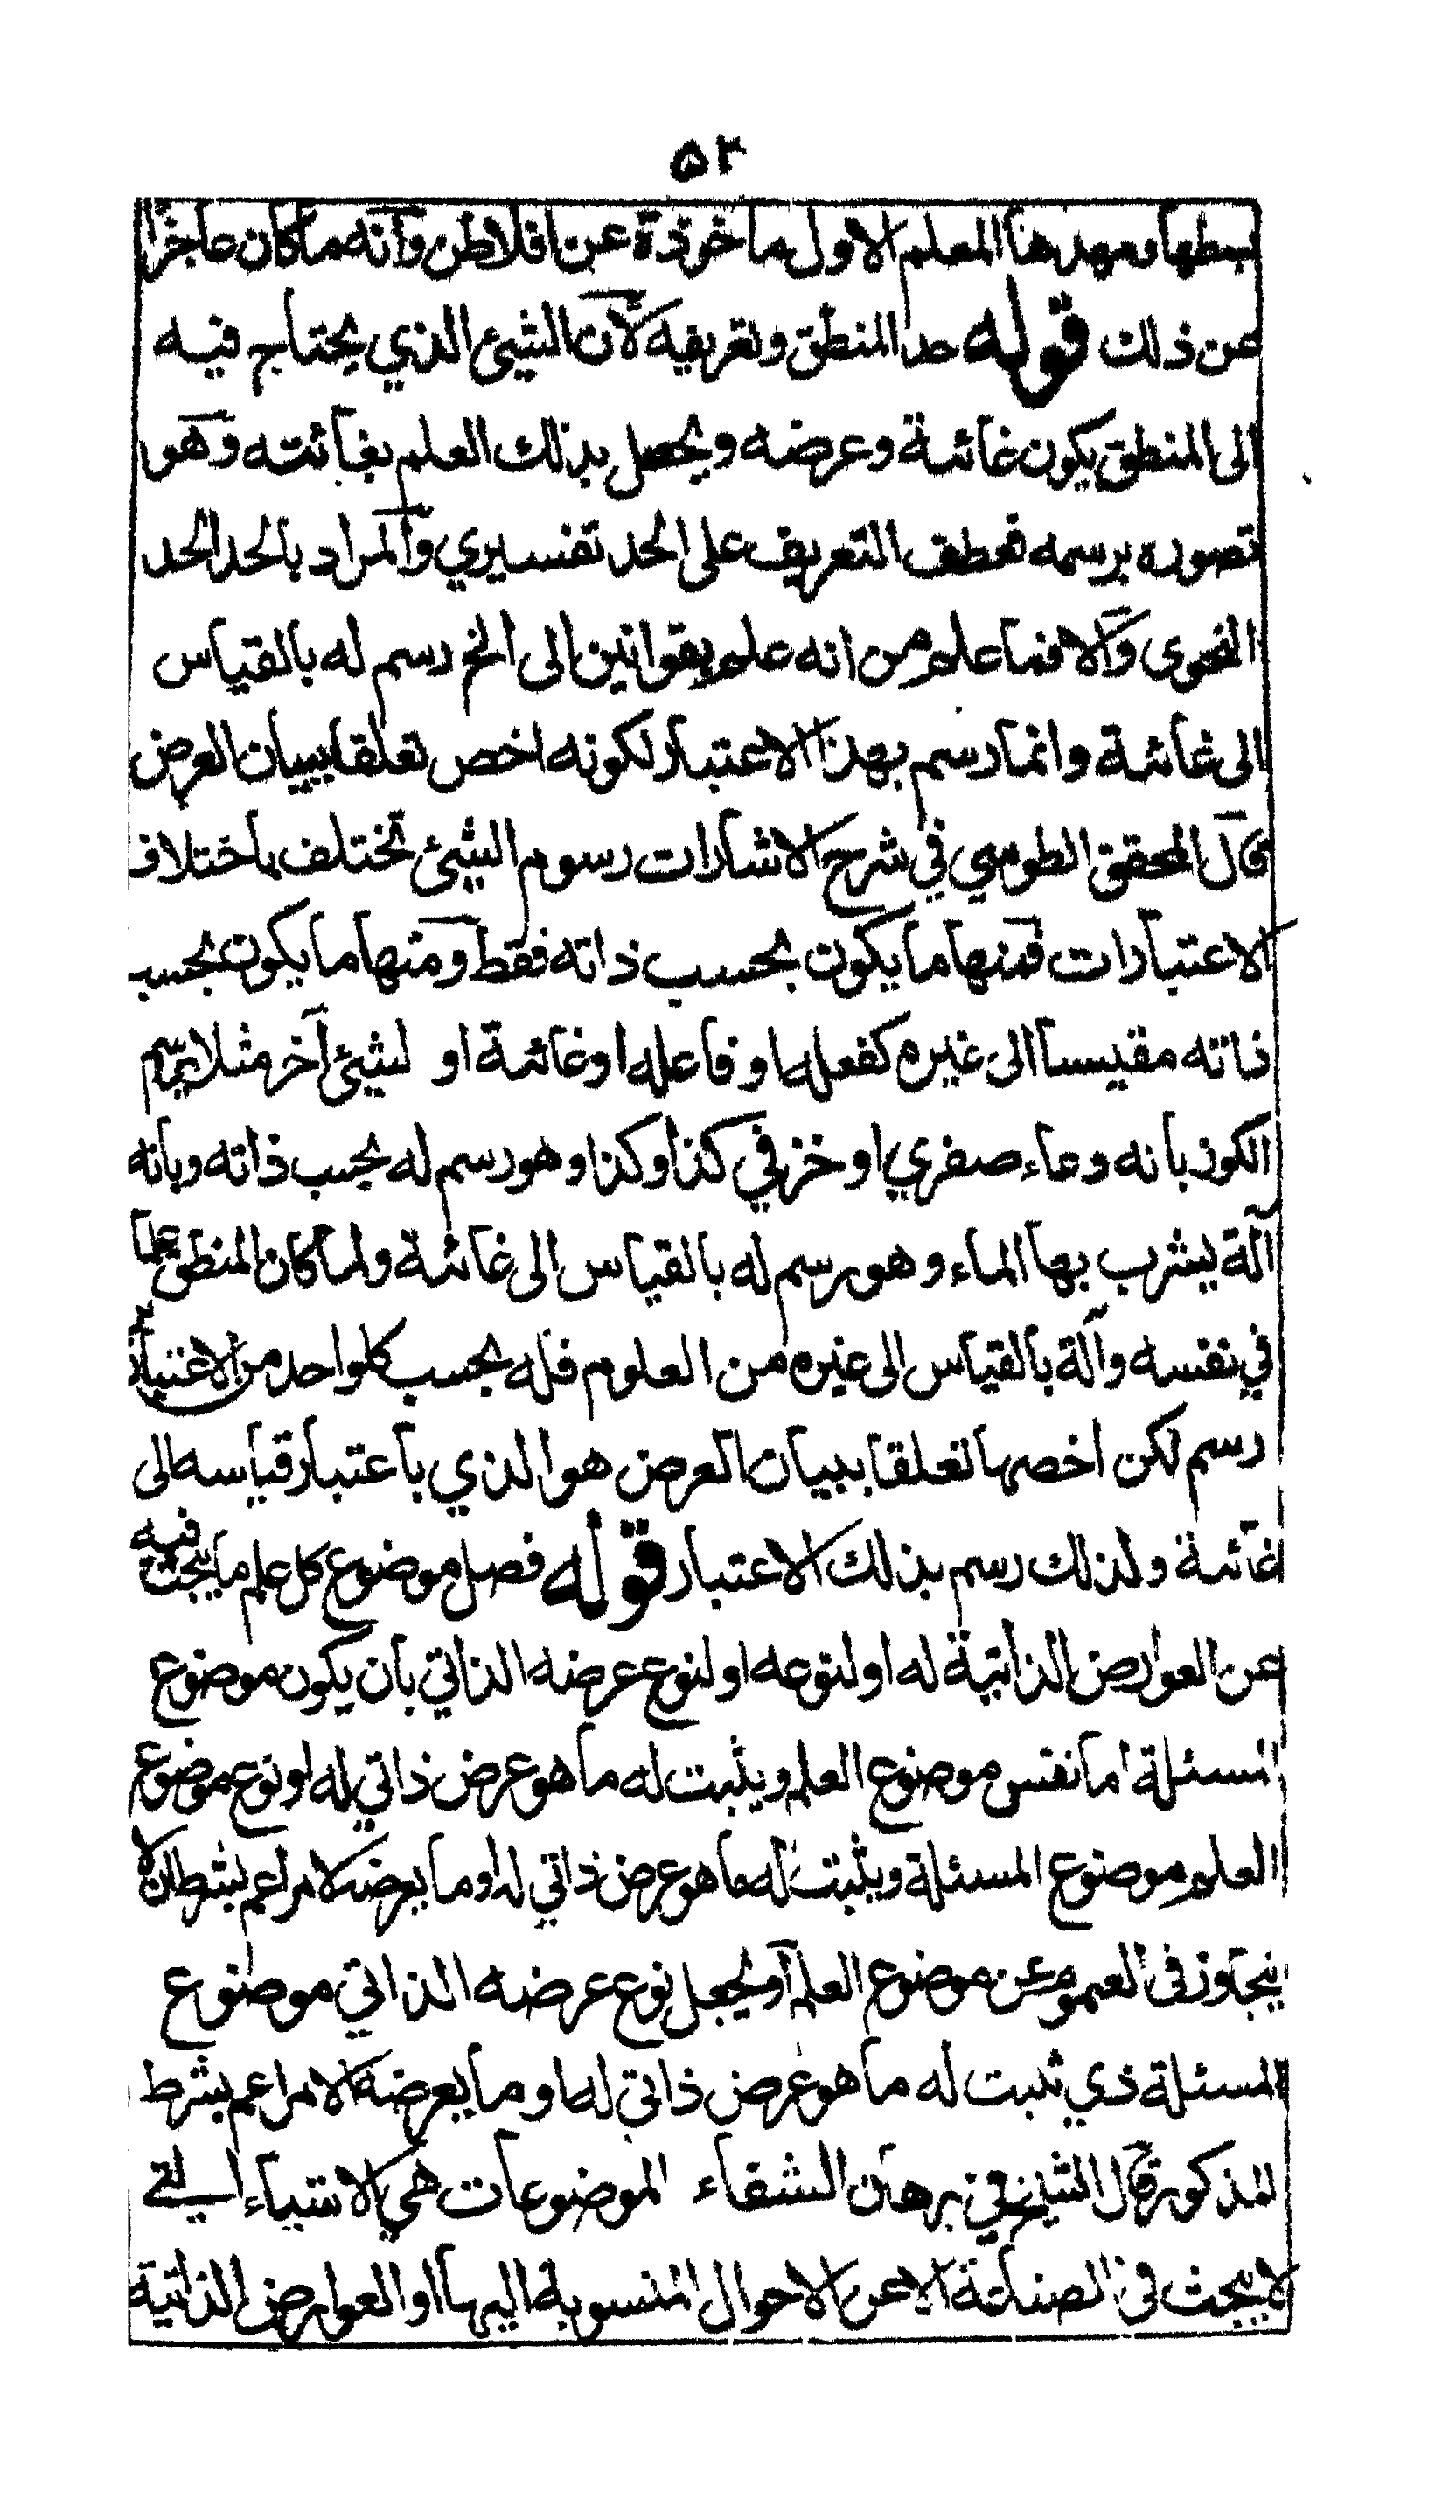 ٥٢
بسطها ومهدها المعلم الاول ماخوذة عن افلاطن وانه ما كان عاجزا
عن ذلك قوله حد المنطق وتعريفه لان الشيئ الذي يحتاج فيه
الى المنطق يكون غائية وعرضه ويحصل بذلك العلم بغائته وهو
تصوره برسمه فعطف التعريف على الحد تفسيري والمراد بالحد الحد
النحوى والا فما علم من انه علم بقوانين الى الخ رسم له بالقياس
الى غائية وانما رسم بهذا الاعتبار لكونه اخص تعلقا ببيان العرض
قال المحقق الطوسي في شرح الاشارات رسوم الشيئ تختلف باختلاف
الاعتبارات فمنها ما يكون بحسب ذاته فقط ومنها ما يكون بحسب
ذاته مقيسا الى غيره كفعله او فاعله او غائية او لشيئ آخر مثلا يرسم
الكوز بانه وعاء صفري او خزفي كذا وكذا وهو رسم له بحسب ذاته وبانه
آلة يشرب بها الماء وهو رسم له بالقياس الى غائية ولما كان المنطق علما
في نفسه وآلة بالقياس الى غيره من العلوم فله بحسب كل واحد من الاعتبارين
رسم لكن اخصها تعلقا ببيان العرض هو الذي باعتبار قياسه الى
غائية ولذلك رسم بذلك الاعتبار قوله فصل موضوع كل علم ما يبحث فيه
عن العوارض الذاتية له او لنوعه او لنوع عرضه الذاتي بان يكون موضوع
المسئلة اما نفس موضوع العلم ويثبت له ما هو عرض ذاتي له او نوع موضوع
العلم موضوع المسئلة ويثبت له ما هو عرض ذاتي له او ما يعرضه لامر اعم بشرط ان لا
يتجاوز فى العموم عن موضوع العلم او يجعل نوع عرضه الذاتي موضوع
المسئلة ذي ثبت له ما هو عرض ذاتي له او ما يعرضه لامر اعم بشرط
المذكور قال الشيخ في برهان الشفاء الموضوعات هي الاشياء التي
لا يبحث في الصناعة الا عن الاحوال المنسوبة اليها او العوارض الذاتية